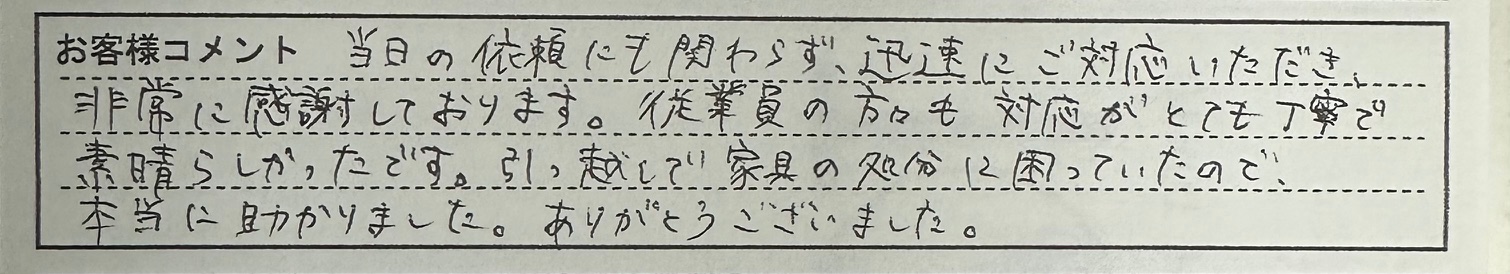 お客様コメント 当日の依頼にも関わらず、迅速にご対応いただき、
非常に感謝しております。従業員の方々も対応がとても丁寧で
素晴らしかったです。引っ越しで家具の処分に困っていたので、
本当に助かりました。ありがとうございました。